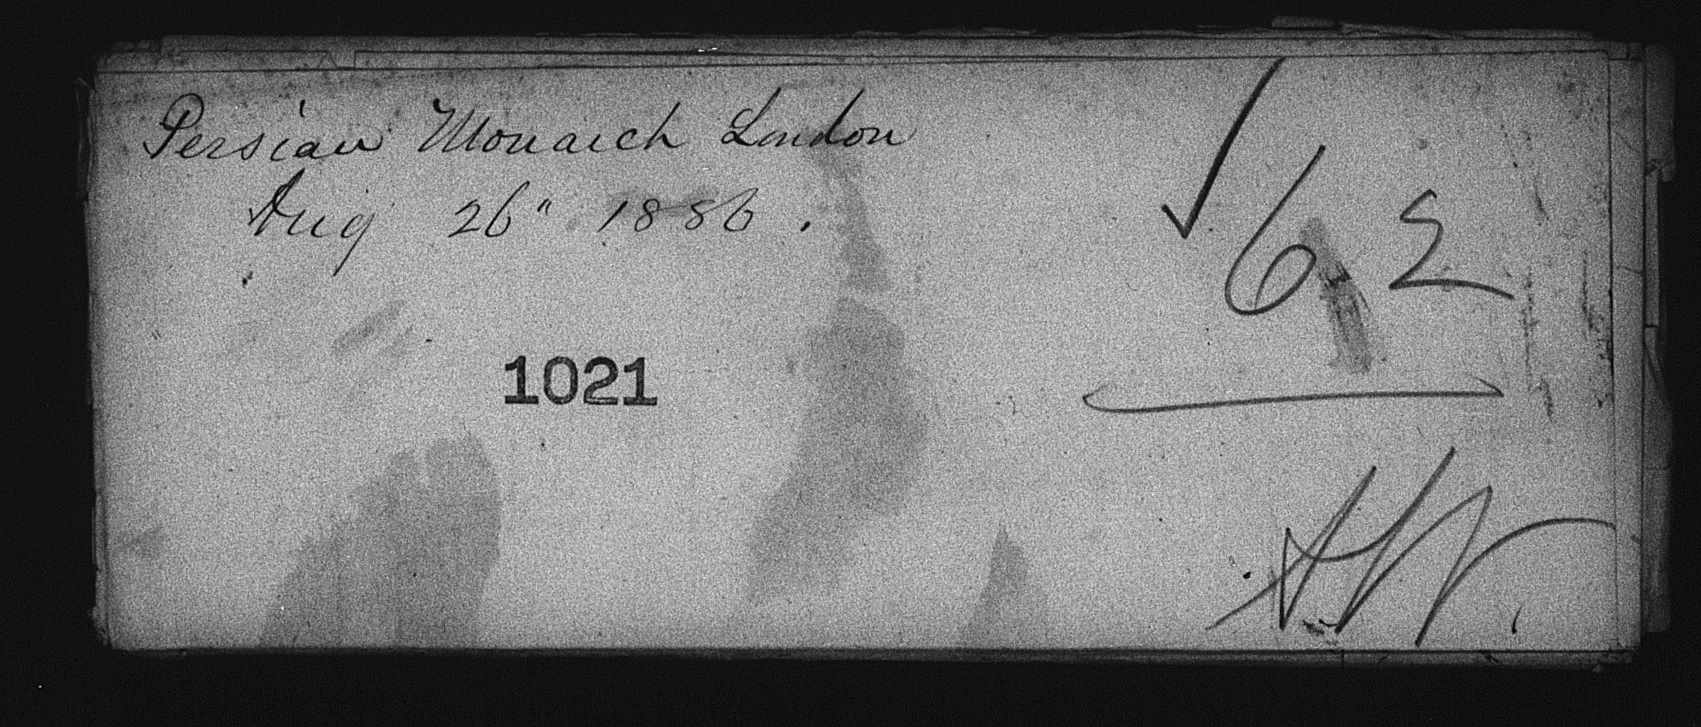 Persian Monarch London
Aug 26" 1886.
✓ 62
1021